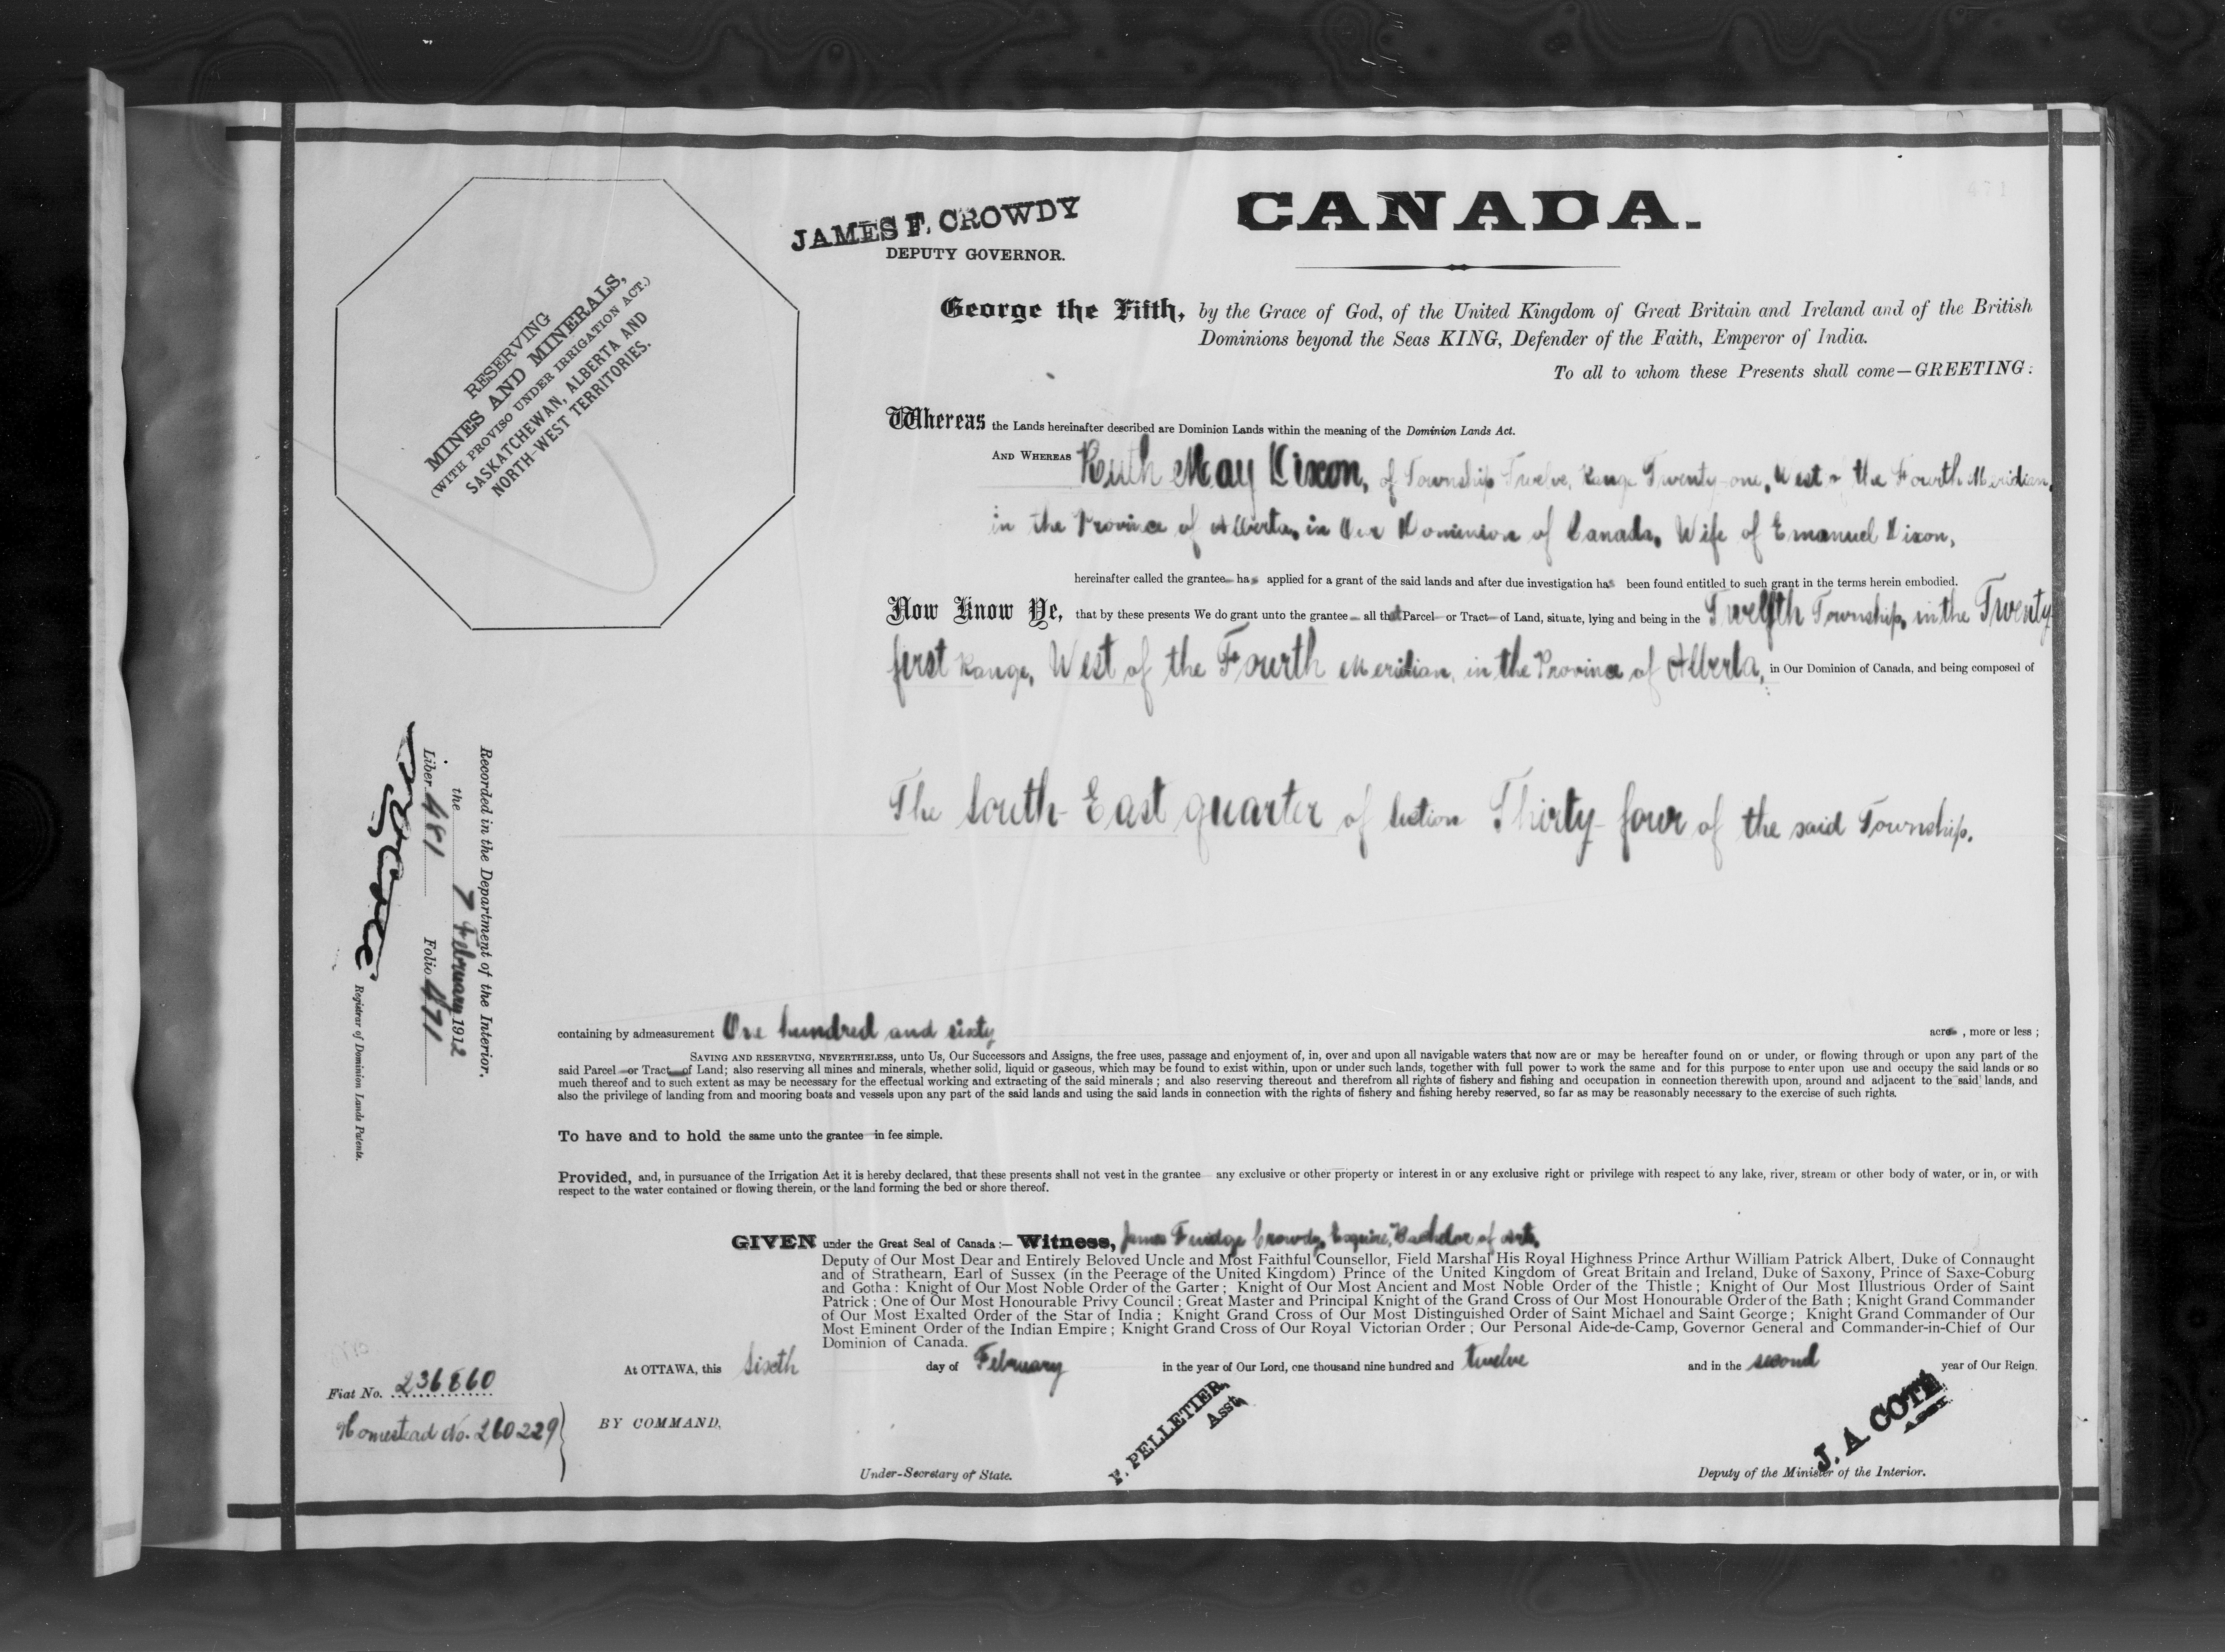 471
CANADA.
JAMES F. CROWDY
DEPUTY GOVERNOR.
George the Fifth, by the Grace of God, of the United Kingdom of Great Britain and Ireland and of the British
Dominions beyond the Seas KING, Defender of the Faith, Emperor of India.
To all to whom these Presents shall come—GREETING:
RESERVING
MINES AND MINERALS,
(WITH PROVISO UNDER IRRIGATION ACT.)
SASKATCHEWAN, ALBERTA AND
NORTH-WEST TERRITORIES.
Whereas the Lands hereinafter described are Dominion Lands within the meaning of the Dominion Lands Act.
AND WHEREAS Ruth May Dixon, of Township Twelve, Range Twenty-one, West of the Fourth Meridian,
in the Province of Alberta, in Our Dominion of Canada, Wife of Emanuel Dixon,
hereinafter called the grantee has applied for a grant of the said lands and after due investigation has been found entitled to such grant in the terms herein embodied.
Now Know Ye, that by these presents We do grant unto the grantee all that Parcel or Tract of Land, situate, lying and being in the Twelfth Township, in the Twenty
first Range, West of the Fourth Meridian, in the Province of Alberta, in Our Dominion of Canada, and being composed of
The South-East quarter of Section Thirty-four of the said Township.
Recorded in the Department of the Interior,
the 7 February 1912
Liber 481 Folio 471
Registrar of Dominion Lands Patents.
containing by admeasurement One hundred and sixty acres, more or less;
SAVING AND RESERVING, NEVERTHELESS, unto Us, Our Successors and Assigns, the free uses, passage and enjoyment of, in, over and upon all navigable waters that now are or may be hereafter found on or under, or flowing through or upon any part of the
said Parcel or Tract of Land; also reserving all mines and minerals, whether solid, liquid or gaseous, which may be found to exist within, upon or under such lands, together with full power to work the same and for this purpose to enter upon use and occupy the said lands or so
much thereof and to such extent as may be necessary for the effectual working and extracting of the said minerals; and also reserving thereout and therefrom all rights of fishery and fishing and occupation in connection therewith upon, around and adjacent to the said lands, and
also the privilege of landing from and mooring boats and vessels upon any part of the said lands and using the said lands in connection with the rights of fishery and fishing hereby reserved, so far as may be reasonably necessary to the exercise of such rights.
To have and to hold the same unto the grantee in fee simple.
Provided, and, in pursuance of the Irrigation Act it is hereby declared, that these presents shall not vest in the grantee any exclusive or other property or interest in or any exclusive right or privilege with respect to any lake, river, stream or other body of water, or in, or with
respect to the water contained or flowing therein, or the land forming the bed or shore thereof.
GIVEN under the Great Seal of Canada:— Witness, James Fuidge Crowdy, Esquire, Bachelor of Arts,
Deputy of Our Most Dear and Entirely Beloved Uncle and Most Faithful Counsellor, Field Marshal His Royal Highness Prince Arthur William Patrick Albert, Duke of Connaught
and of Strathearn, Earl of Sussex (in the Peerage of the United Kingdom) Prince of the United Kingdom of Great Britain and Ireland, Duke of Saxony, Prince of Saxe-Coburg
and Gotha: Knight of Our Most Noble Order of the Garter; Knight of Our Most Ancient and Most Noble Order of the Thistle; Knight of Our Most Illustrious Order of Saint
Patrick; One of Our Most Honourable Privy Council; Great Master and Principal Knight of the Grand Cross of Our Most Honourable Order of the Bath; Knight Grand Commander
of Our Most Exalted Order of the Star of India; Knight Grand Cross of Our Most Distinguished Order of Saint Michael and Saint George; Knight Grand Commander of Our
Most Eminent Order of the Indian Empire; Knight Grand Cross of Our Royal Victorian Order; Our Personal Aide-de-Camp, Governor General and Commander-in-Chief of Our
Dominion of Canada.
At OTTAWA, this Sixth day of February in the year of Our Lord, one thousand nine hundred and twelve and in the second year of Our Reign.
Fiat No. 236860
Homestead No. 260229
BY COMMAND,
F. PELLETIER,
Asst.
J. A. COTÉ
ASST.
Under-Secretary of State.
Deputy of the Minister of the Interior.